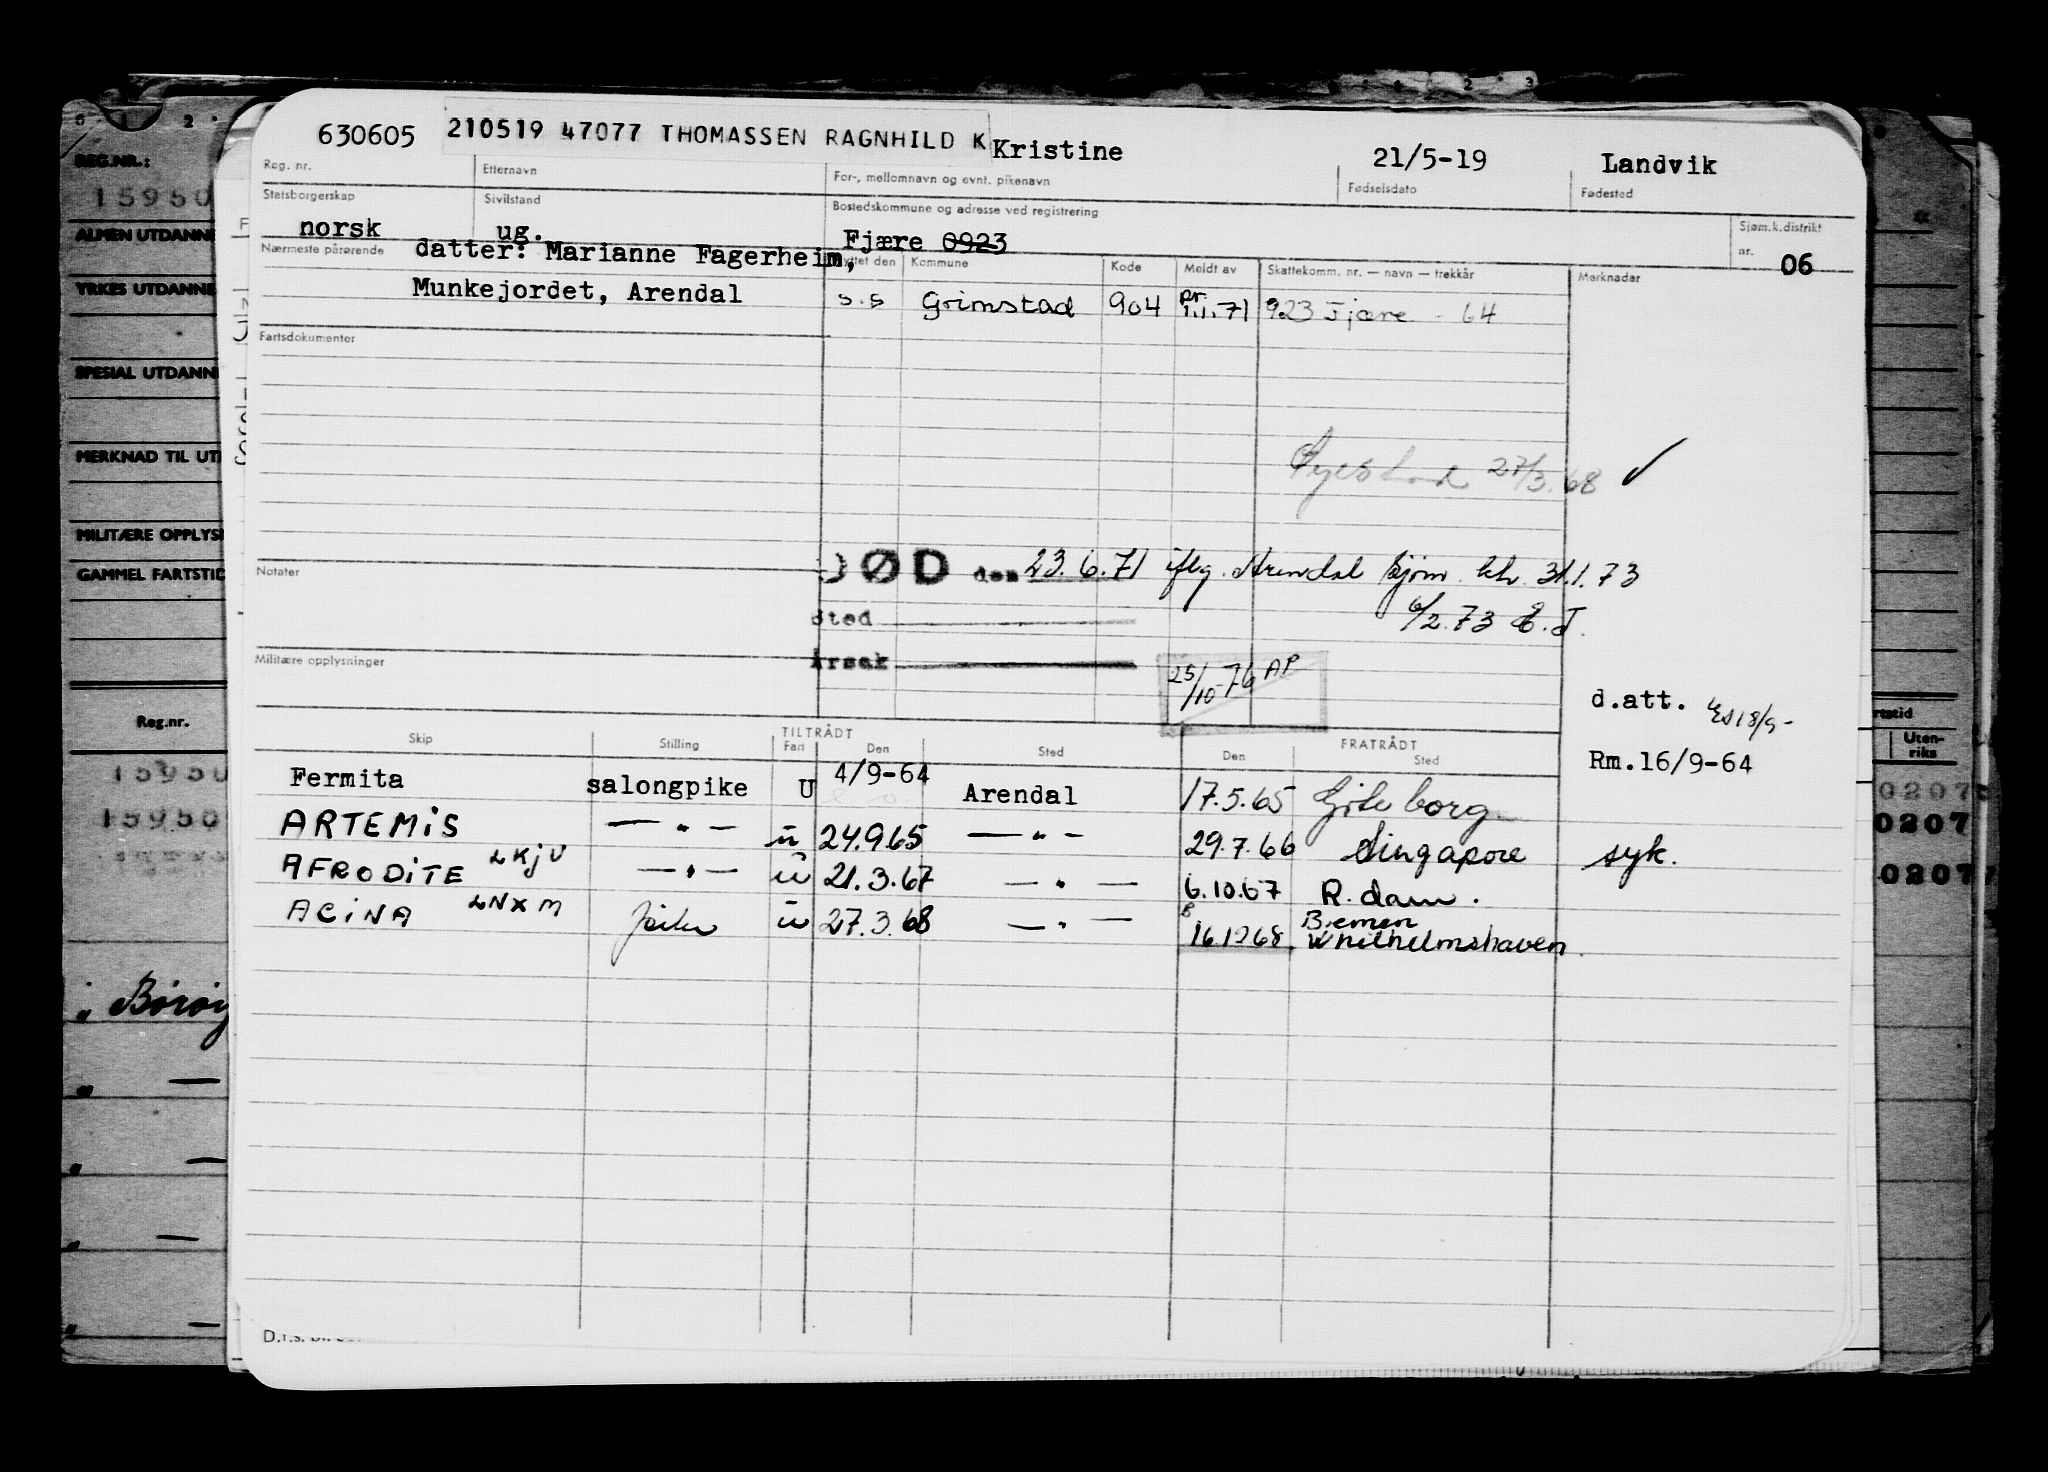 630605 210519 47077 THOMASSEN RAGNHILD K Kristine 21/5-19 Landvik
Reg. nr. Etternavn For-, mellomnavn og evnt. pikenavn Fødselsdato Fødested
Statsborgerskap Sivilstand Bostedskommune og adresse ved registrering Sjøm.k.distrikt nr.
norsk ug. Fjære 0923 06
Nærmeste pårørende datter: Marianne Fagerheim,
Munkejordet, Arendal
yttet den Kommune Kode Meldt av Skattekomm. nr. — navn — trekkår Merknader
s.s Grimstad 904 pr. 1.1.71 923 Fjære - 64
Fartsdokumenter
27/3.68 ✓
Notater
DØD den 23.6.71 iflg. Arendal sjøm. kh. 31.1.73
6/2.73 E.T.
Sted
Årsak
Militære opplysninger
25/10-76 AP
d.att. 18/9-
Rm.16/9-64
Skip Stilling TILTRÅDT Fart Den Sted FRATRÅDT Den Sted
Fermita salongpike U 4/9-64 Arendal 17.5.65 Göteborg
ARTEMIS — " — u 24.9.65 — " — 29.7.66 Singapore syk.
AFRODITE LKJU — " — u 21.3.67 — " — 6.10.67 R.dam.
ACINA LNXM pike u 27.3.68 — " — 16.12.68 Bremen
Whilhelmshaven
REG.NR.:
15950
ALMEN UTDANNE
YRKES UTDANNE
SPESIAL UTDANN
MERKNAD TIL UT
MILITÆRE OPPLYS
GAMMEL FARTSTID
Reg.nr.
15950
15950
" Borøy
" —
" —
" —
" —
rtstid
Uten-
riks
0207
0207
0207